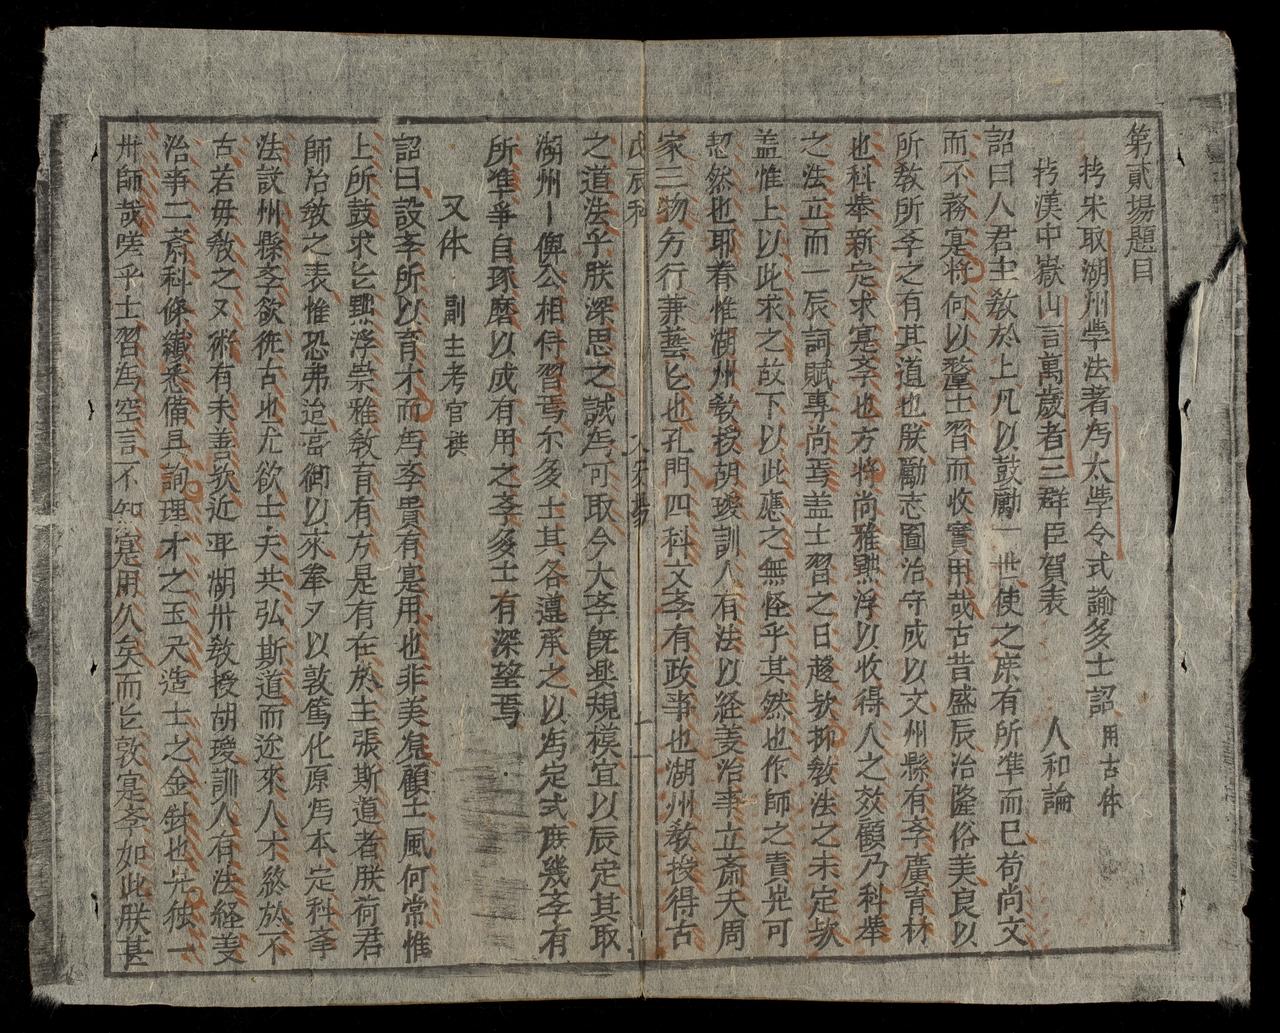 第貳場題目
拷宋取湖州斈法者為太斈令式諭多士詔 用古体
拷漢中嶽山言萬歲者三群臣賀表 人和論
詔曰人君主教於上凡以鼓勵一世使之庶有所準而已苟尚文
而不務寔將何以釐士習而收實用哉古昔盛辰治隆俗美良以
所教所斈之有其道也朕勵志圖治守成以文州縣有斈廣育材
也科舉新定求寔斈也方將尚雅黜浮以收得人之效顧乃科舉
之法立而一辰詞賦專尚焉盖士習之日趍欤抑教法之未定欤
盖惟上以此求之故下以此應之無怪乎其然也作師之責豈可
恝然也耶眷惟湖州教授胡瑗訓人有法以経義治事立斎夫周
家三物方行兼藝也孔門四科文斈有政事也湖州教授得古
戊辰科 十一
之道法乎朕深思之誠為可取今大斈既興規模宜以辰定其取
湖州斈俾公相待習焉不多士其各遵承之以為定式庶幾斈有
所準爭自琢磨以成有用之斈多士有深望焉
又体 副主考官
詔曰設斈所以育才而為斈貴有寔用也非美覌顧士風何常惟
上所鼓求黜浮崇雅教育有方是有在於主張斯道者朕荷君
師治教之表惟恐弗迨嵩御以來拳又以敦篤化原為本定科斈
法設州縣斈欲徃古也尤欲士夫共弘斯道而迩來人才終於不
古若毋教之又術有未善欤近耳湖州教授胡瑗訓人有法経義
治事二斎科條纖悉備具詢理才之玉尺造士之金針也先独一
卅師哉嗟乎士習為空言不知寔用久矣而敦寔斈如此朕甚